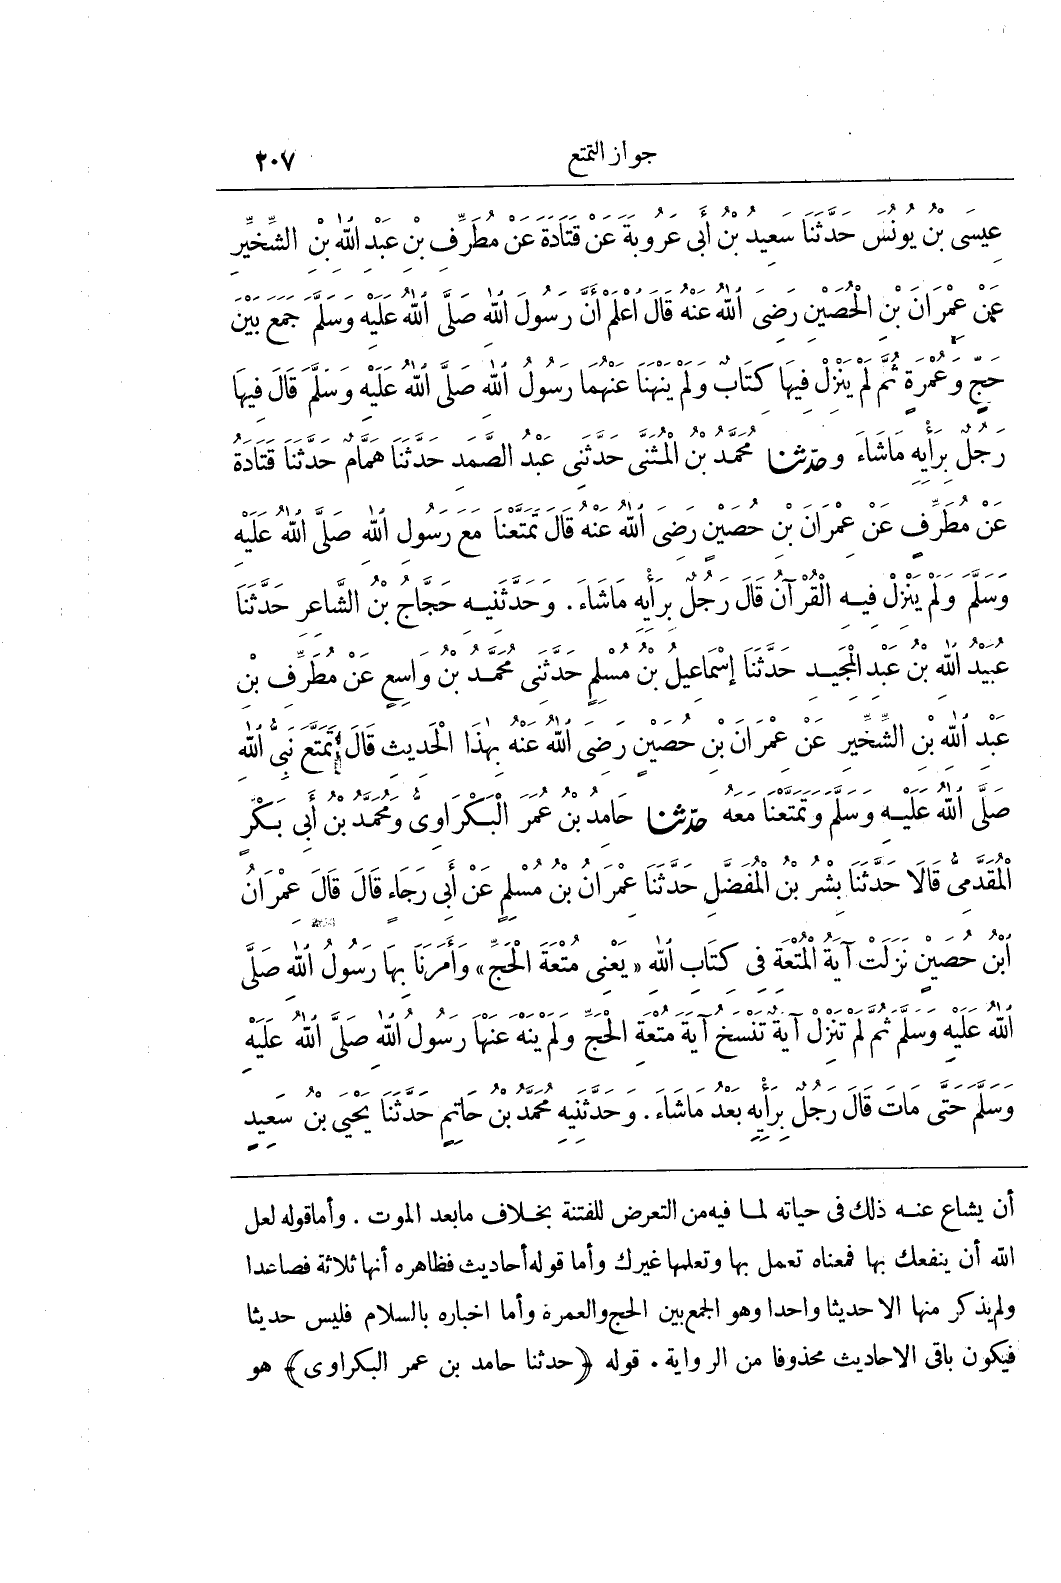 جواز التمتع ٢٠٧
عِيسَى بْنُ يُونُسَ حَدَّثَنَا سَعِيدُ بْنُ أَبِى عَرُوبَةَ عَنْ قَتَادَةَ عَنْ مُطَرِّفِ بْنِ عَبْدِ اللهِ بْنِ الشِّخِّيرِ
عَنْ عِمْرَانَ بْنِ الْحُصَيْنِ رَضِىَ اللهُ عَنْهُ قَالَ اعْلَمْ أَنَّ رَسُولَ اللهِ صَلَّى اللهُ عَلَيْهِ وَسَلَّمَ جَمَعَ بَيْنَ
حَجٍّ وَعُمْرَةٍ ثُمَّ لَمْ يَنْزِلْ فِيهَا كِتَابٌ وَلَمْ يَنْهَنَا عَنْهُمَا رَسُولُ اللهِ صَلَّى اللهُ عَلَيْهِ وَسَلَّمَ قَالَ فِيهَا
رَجُلٌ بِرَأْيِهِ مَاشَاءَ وَحَدَّثَنَا مُحَمَّدُ بْنُ الْمُثَنَّى حَدَّثَنِى عَبْدُ الصَّمَدِ حَدَّثَنَا هَمَّامٌ حَدَّثَنَا قَتَادَةُ
عَنْ مُطَرِّفٍ عَنْ عِمْرَانَ بْنِ حُصَيْنٍ رَضِىَ اللهُ عَنْهُ قَالَ تَمَتَّعْنَا مَعَ رَسُولِ اللهِ صَلَّى اللهُ عَلَيْهِ
وَسَلَّمَ وَلَمْ يَنْزِلْ فِيهِ الْقُرْآنُ قَالَ رَجُلٌ بِرَأْيِهِ مَاشَاءَ . وَحَدَّثَنِيهِ حَجَّاجُ بْنُ الشَّاعِرِ حَدَّثَنَا
عُبَيْدُ اللهِ بْنُ عَبْدِ الْمَجِيدِ حَدَّثَنَا إِسْمَاعِيلُ بْنُ مُسْلِمٍ حَدَّثَنِى مُحَمَّدُ بْنُ وَاسِعٍ عَنْ مُطَرِّفِ بْنِ
عَبْدِ اللهِ بْنِ الشِّخِّيرِ عَنْ عِمْرَانَ بْنِ حُصَيْنٍ رَضِىَ اللهُ عَنْهُ بِهٰذَا الْحَدِيثِ قَالَ تَمَتَّعَ نَبِىُّ اللهِ
صَلَّى اللهُ عَلَيْهِ وَسَلَّمَ وَتَمَتَّعْنَا مَعَهُ حَدَّثَنَا حَامِدُ بْنُ عُمَرَ الْبَكْرَاوِىُّ وَمُحَمَّدُ بْنُ أَبِى بَكْرٍ
الْمُقَدَّمِىُّ قَالَا حَدَّثَنَا بِشْرُ بْنُ الْمُفَضَّلِ حَدَّثَنَا عِمْرَانُ بْنُ مُسْلِمٍ عَنْ أَبِى رَجَاءٍ قَالَ قَالَ عِمْرَانُ
ابْنُ حُصَيْنٍ نَزَلَتْ آيَةُ الْمُتْعَةِ فِى كِتَابِ اللهِ «يَعْنِى مُتْعَةَ الْحَجِّ» وَأَمَرَنَا بِهَا رَسُولُ اللهِ صَلَّى
اللهُ عَلَيْهِ وَسَلَّمَ ثُمَّ لَمْ تَنْزِلْ آيَةٌ تَنْسَخُ آيَةَ مُتْعَةِ الْحَجِّ وَلَمْ يَنْهَ عَنْهَا رَسُولُ اللهِ صَلَّى اللهُ عَلَيْهِ
وَسَلَّمَ حَتَّى مَاتَ قَالَ رَجُلٌ بِرَأْيِهِ بَعْدُ مَاشَاءَ . وَحَدَّثَنِيهِ مُحَمَّدُ بْنُ حَاتِمٍ حَدَّثَنَا يَحْيَى بْنُ سَعِيدٍ
أن يشاع عنه ذلك فى حياته لما فيه من التعرض للفتنة بخلاف مابعد الموت . وأماقوله لعل
الله أن ينفعك بها فمعناه تعمل بها وتعلمها غيرك وأما قوله أحاديث فظاهره أنها ثلاثة فصاعدا
ولم يذكر منها الاحديثا واحدا وهو الجمع بين الحج والعمرة وأما اخباره بالسلام فليس حديثا
فيكون باقى الاحاديث محذوفا من الرواية . قوله ﴿حدثنا حامد بن عمر البكراوى﴾ هو